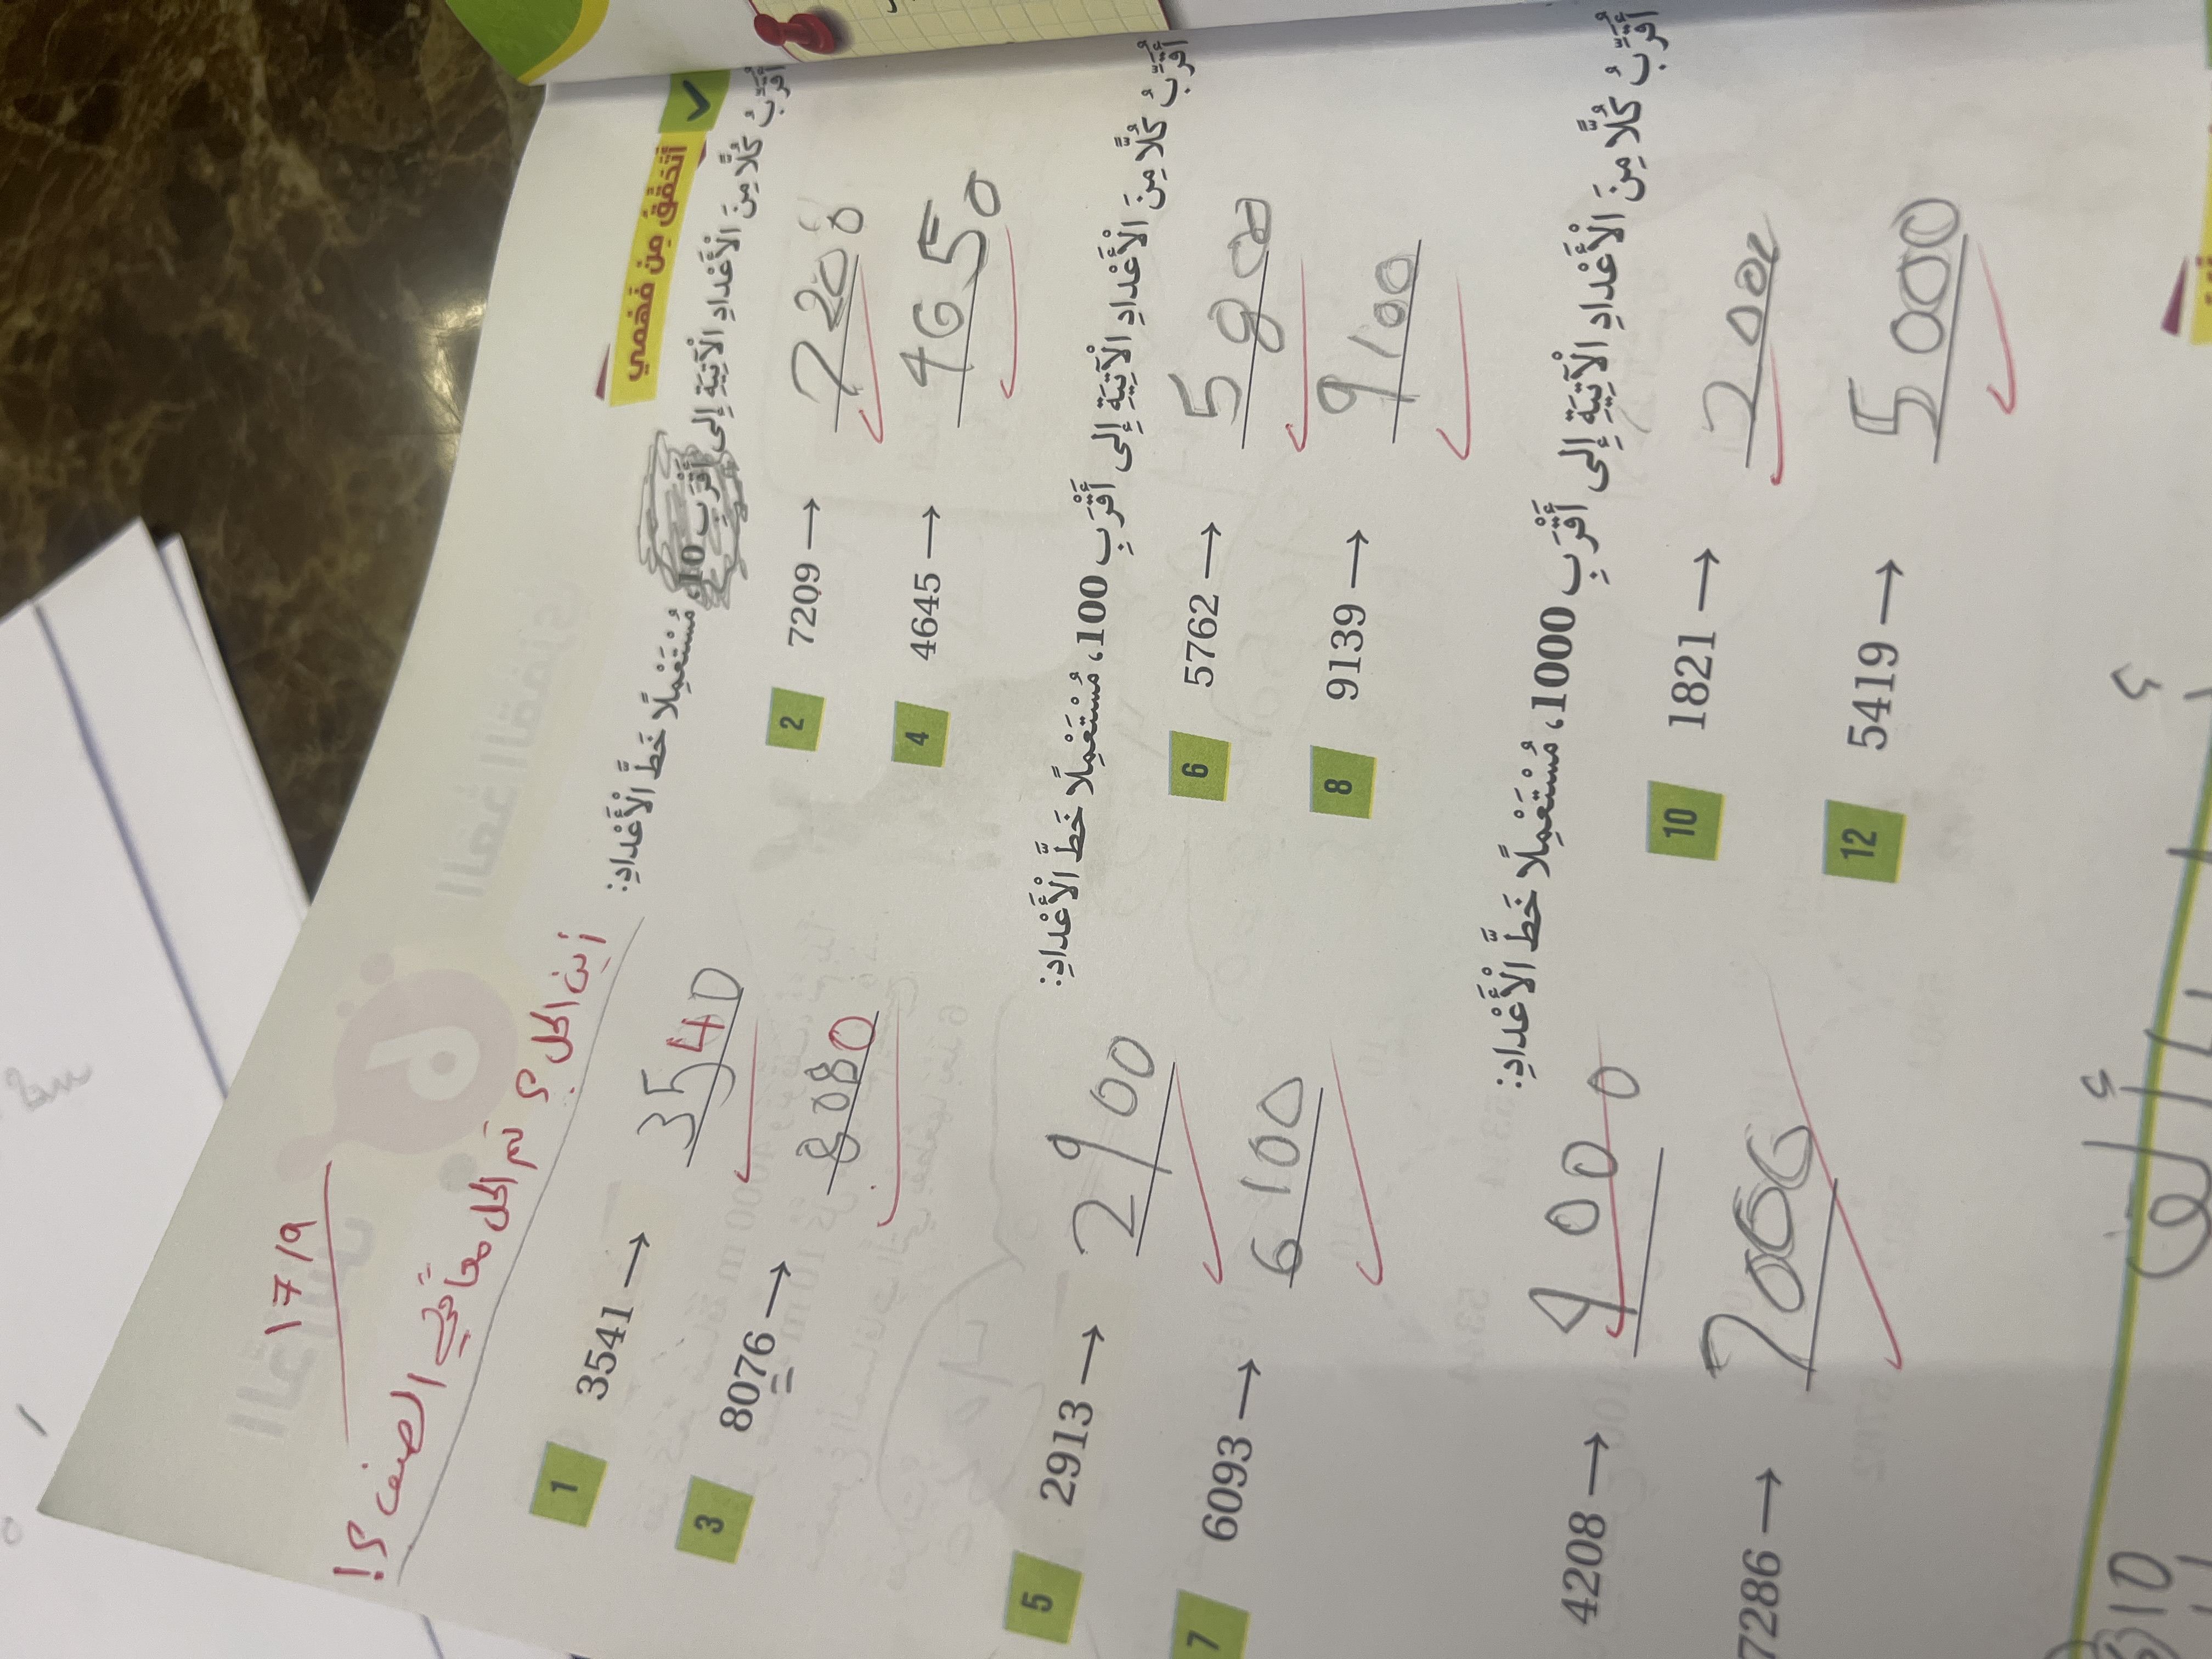 ١٧/٩
أين الحل؟ تم الحل معاً في الصف؟!
أتحقق من فهمي
أُقَرِّبُ كُلًّا مِنَ الْأَعْدَادِ الْآتِيَةِ إِلَى أَقْرَبِ 10، مُسْتَعْمِلًا خَطَّ الْأَعْدَادِ:
1 3541 → 3540
2 7209 →
3 8076 → 8080
4 4645 → 4650
أُقَرِّبُ كُلًّا مِنَ الْأَعْدَادِ الْآتِيَةِ إِلَى أَقْرَبِ 100، مُسْتَعْمِلًا خَطَّ الْأَعْدَادِ:
5 2913 → 2900
6 5762 → 5800
7 6093 → 6100
8 9139 → 9100
أُقَرِّبُ كُلًّا مِنَ الْأَعْدَادِ الْآتِيَةِ إِلَى أَقْرَبِ 1000، مُسْتَعْمِلًا خَطَّ الْأَعْدَادِ:
4208 → 4000
10 1821 → 2000
7286 → 7000
12 5419 → 5000